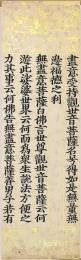 盡意受持觀世音菩薩名号得如是無量無
邊福德之利
無盡意菩薩白佛言世尊觀世音菩薩云何
遊此娑婆世界云何而為衆生說法方便之
力其事云何佛告無盡意菩薩善男子若有